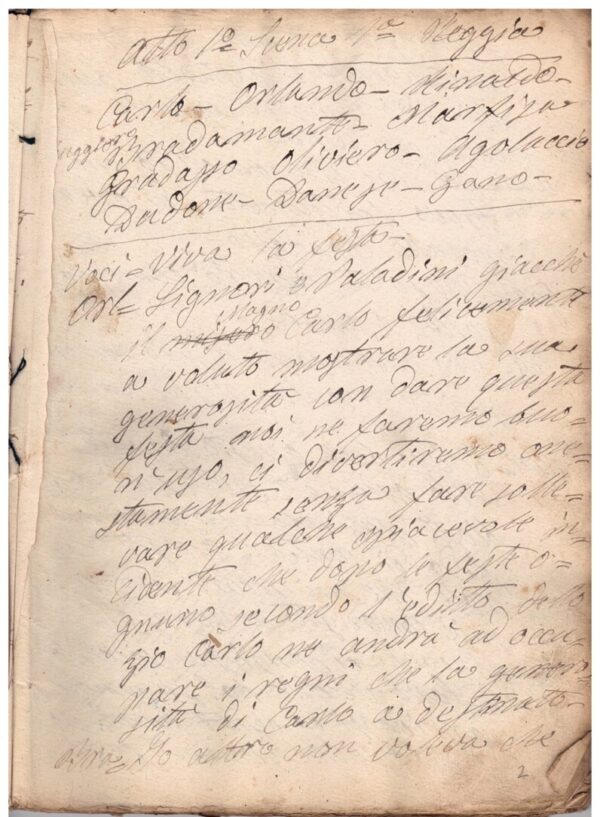 Atto 1º Scena 1ª Reggia
Carlo - Orlando - Rinaldo -
Ruggiero Bradamante - Marfisa
Gradasso Oliviero - Agolaccio
Dudone - Danese - Gano -
Voci = Viva la festa -
Orl = Signori e Paladini giacchè
Magno
il misero Carlo felicemente
a voluto mostrare la sua
generosità con dare questa
festa noi ne faremo buo=
n'uso, ci divertiremo one=
stamente senza fare solle=
vare qualche spiacevole in=
cidente che dopo le feste o=
gnuno secondo l'editto dello
zio Carlo ne andrà ad occu=
pare i regni che la genero=
sità di Carlo a destinato -
Io altro non voleva che
2